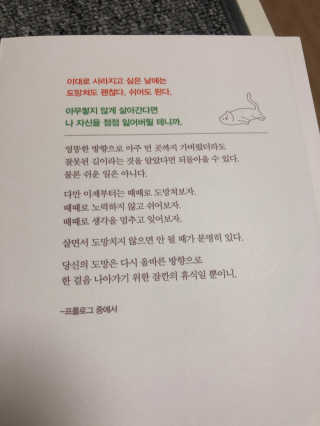 이대로 사라지고 싶은 날에는
도망쳐도 괜찮다. 쉬어도 된다.
아무렇지 않게 살아간다면
나 자신을 점점 잃어버릴 테니까.
엉뚱한 방향으로 아주 먼 곳까지 가버렸더라도
잘못된 길이라는 것을 알았다면 되돌아올 수 있다.
물론 쉬운 일은 아니다.
다만 이제부터는 때때로 도망쳐보자.
때때로 노력하지 않고 쉬어보자.
때때로 생각을 멈추고 잊어보자.
살면서 도망치지 않으면 안 될 때가 분명히 있다.
당신의 도망은 다시 올바른 방향으로
한 걸음 나아가기 위한 잠깐의 휴식일 뿐이니.
~프롤로그 중에서